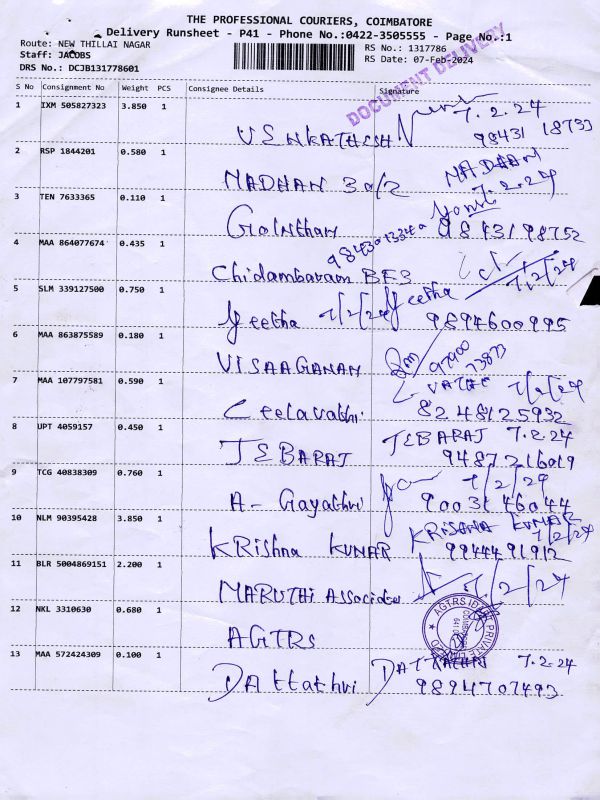 THE PROFESSIONAL COURIERS, COIMBATORE
Delivery Runsheet - P41 - Phone No.:0422-3505555 - Page No.:1
Route: NEW THILLAI NAGAR
RS No.: 1317786
Staff: JACOBS
RS Date: 07-Feb-2024
DRS No.: DCJB131778601
DOCUMENT DELIVERY
S No Consignment No Weight PCS Consignee Details Signature
1 IXM 505827323 3.850 1
7.2.24
VENKATHESH 98431 18733
2 RSP 1844201 0.580 1
MADHAN
MADHAN 302 7.2.24
3 TEN 7633365 0.110 1
Gowtham 9843198752
4 MAA 864077674 0.435 1
Chidambaram BE3 7/2/24
5 SLM 339127500 0.750 1
Geetha 7/2/24 Geetha
9894600995
6 MAA 863875589 0.180 1
VISAAGANAN 97900 73873
7 MAA 107797581 0.590 1
7/2/24
Leelavathi 8248125932
8 UPT 4059157 0.450 1
JEBARAJ 7.2.24
JEBARAJ 9487216019
9 TCG 40838309 0.760 1
7/2/24
A- Gayathri 9003146044
10 NLM 90395428 3.850 1
KRISHNA KUMAR 7/2/24
Krishna KUMAR 9944491912
11 BLR 5004869151 2.200 1
MARUTHI Associates 7/2/24
12 NKL 3310630 0.680 1
AGTRS
13 MAA 572424309 0.100 1
7.2.24
Dattathri 9894707493